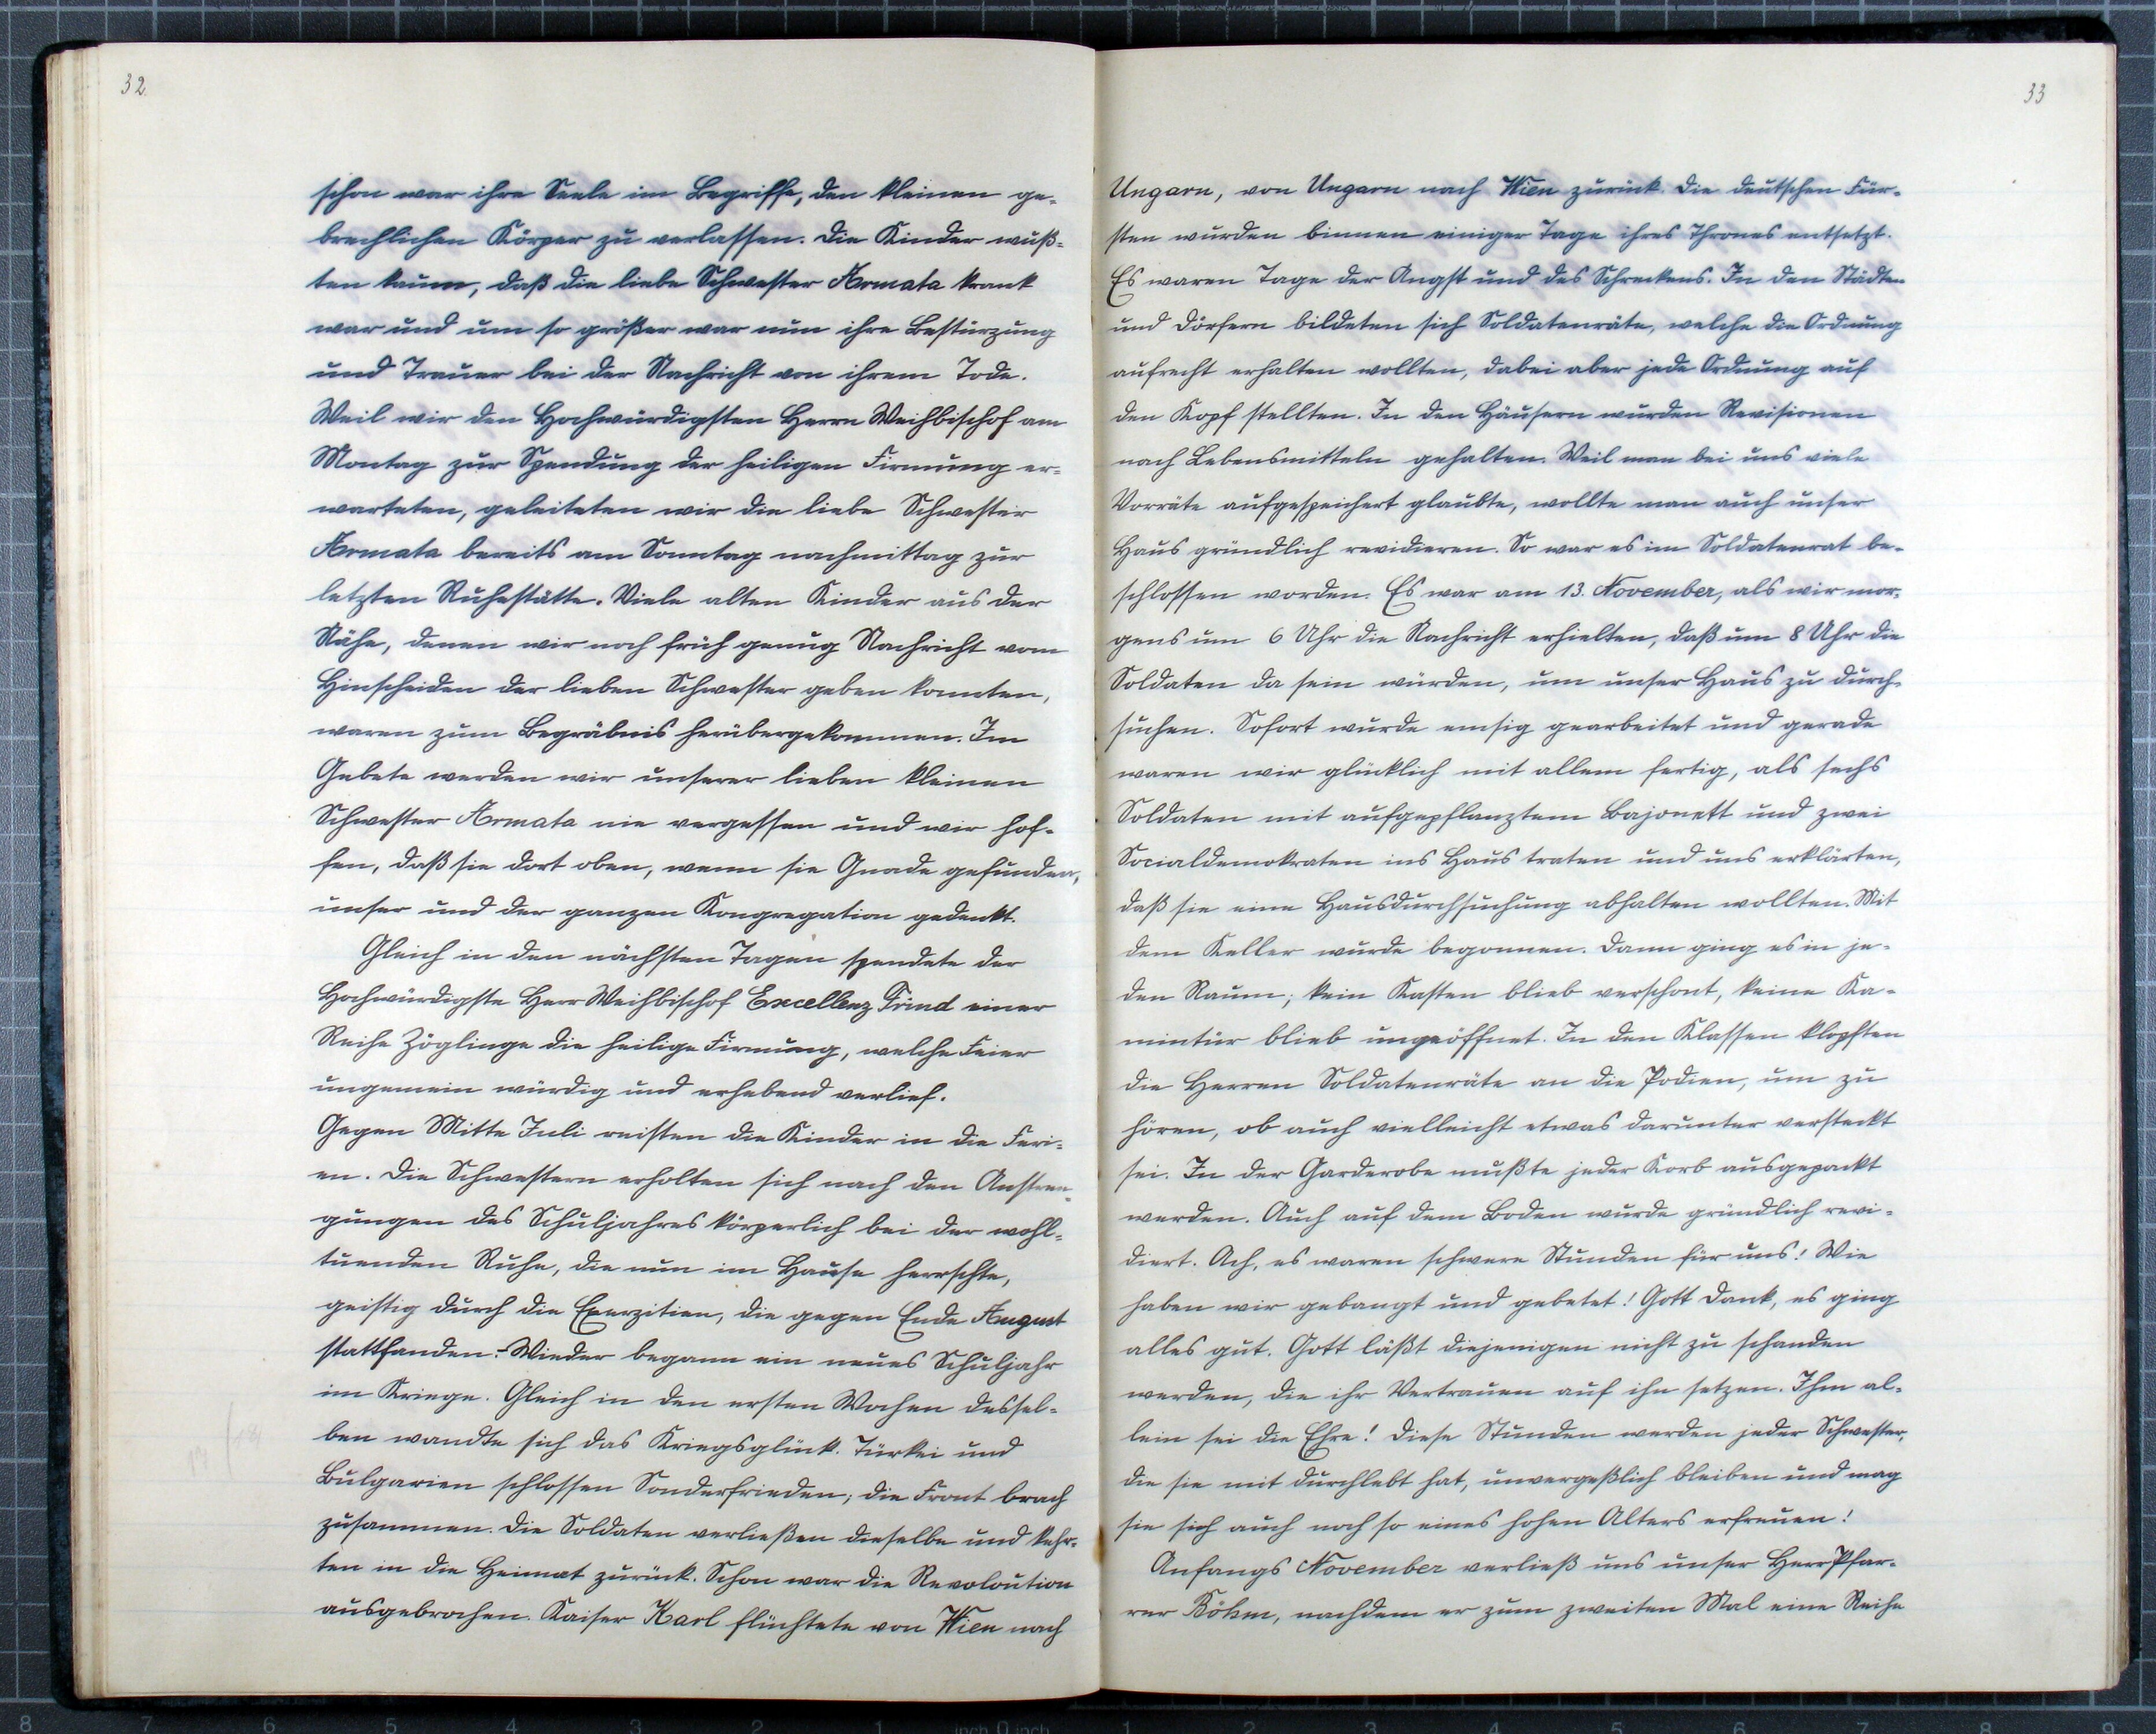 32
schon war ihre Seele im Begriffe, den kleinen ge-
brechlichen Körper zu verlassen. Die Kinder wuß-
ten kaum, daß die liebe Schwester Armata krank
war und um so größer war nun ihre Bestürzung
und Trauer bei der Nachricht von ihrem Tode.
Weil wir den Hochwürdigsten Herrn Weihbischof am
Montag zur Spendung der heiligen Firmung er-
warteten, geleiteten wir die liebe Schwester
Armata bereits am Sonntag nachmittag zur
letzten Ruhestätte. Viele alten Kinder aus der
Nähe, denen wir noch früh genug Nachricht vom
Hinscheiden der lieben Schwester geben konnten,
waren zum Begräbnis herübergekommen. Im
Gebete werden wir unserer lieben kleinen
Schwester Armata nie vergessen und wir hof-
fen, daß sie dort oben, wenn sie Gnade gefunden,
unser und der ganzen Kongregation gedenkt.
Gleich in den nächsten Tagen spendete der
Hochwürdigste Herr Weihbischof Excellenz Frind einer
Reihe Zöglinge die heilige Firmung, welche Feier
ungemein würdig und erhebend verlief.
Gegen Mitte Juli reisten die Kinder in die Feri-
en. Die Schwestern erholten sich nach den Anstren-
gungen des Schuljahres körperlich bei der wohl-
tuenden Ruhe, die nun im Hause herrschte,
geistig durch die Exerzitien, die gegen Ende August
stattfanden.- Wieder begann ein neues Schuljahr
im Kriege. Gleich in den ersten Wochen dessel-
ben wandte sich das Kriegsglück. Türkei und
Bulgarien schlossen Sonderfrieden; die Front brach
zusammen. Die Soldaten verließen dieselbe und kehr-
ten in die Heimat zurück. Schon war die Revoloution
ausgebrochen. Kaiser Karl flüchtete von Wien nach
33
Ungarn, von Ungarn nach Wien zurück. Die deutschen Für-
sten wurden binnen einiger Tage ihres Thrones entsetzt.
Es waren Tage der Angst und des Schreckens. In den Städten
und Dörfern bildeten sich Soldatenräte, welche die Ordnung
aufrecht erhalten wollten, dabei aber jede Ordnung auf
den Kopf stellten. In den Häusern wurden Revisionen
nach Lebensmitteln gehalten. Weil man bei uns viele
Vorräte aufgespeichert glaubte, wollte man auch unser
Haus gründlich revidieren. So war es im Soldatenrat be-
schlossen worden. Es war am 13. November, als wir mor-
gens um 6 Uhr die Nachricht erhielten, daß um 8 Uhr die
Soldaten da sein würden, um unser Haus zu durch-
suchen. Sofort wurde emsig gearbeitet und gerade
waren wir glücklich mit allem fertig, als sechs
Soldaten mit aufgepflanztem Bajonett und zwei
Socialdemokraten ins Haus traten und uns erklärten,
daß sie eine Hausdurchsuchung abhalten wollten. Mit
dem Keller wurde begonnen. Dann ging es in je-
den Raum; kein Kasten blieb verschont, keine Ka-
mintür blieb ungeöffnet. In den Klassen klopften
die Herren Soldatenräte an die Podien, um zu
hören, ob auch vielleicht etwas darunter versteckt
sei. In der Garderobe mußte jeder Korb ausgepackt
werden. Auch auf dem Boden wurde gründlich revi-
diert. Ach, es waren schwere Stunden für uns! Wie
haben wir gebangt und gebetet! Gott Dank, es ging
alles gut. Gott läßt diejenigen nicht zu schanden
werden, die ihr Vertrauen auf ihn setzen. Ihm al-
lein sei die Ehre! Diese Stunden werden jeder Schwester,
die sie mit durchlebt hat, unvergeßlich bleiben und mag
sie sich auch noch so eines hohen Alters erfreuen!
Anfangs November verließ uns unser Herr Pfar-
rer Böhm, nachdem er zum zweiten Mal eine Reihe
8 7 6 5 4 3 2 1 inch 0 inch 1 2 3 4 5 6 7 8 9